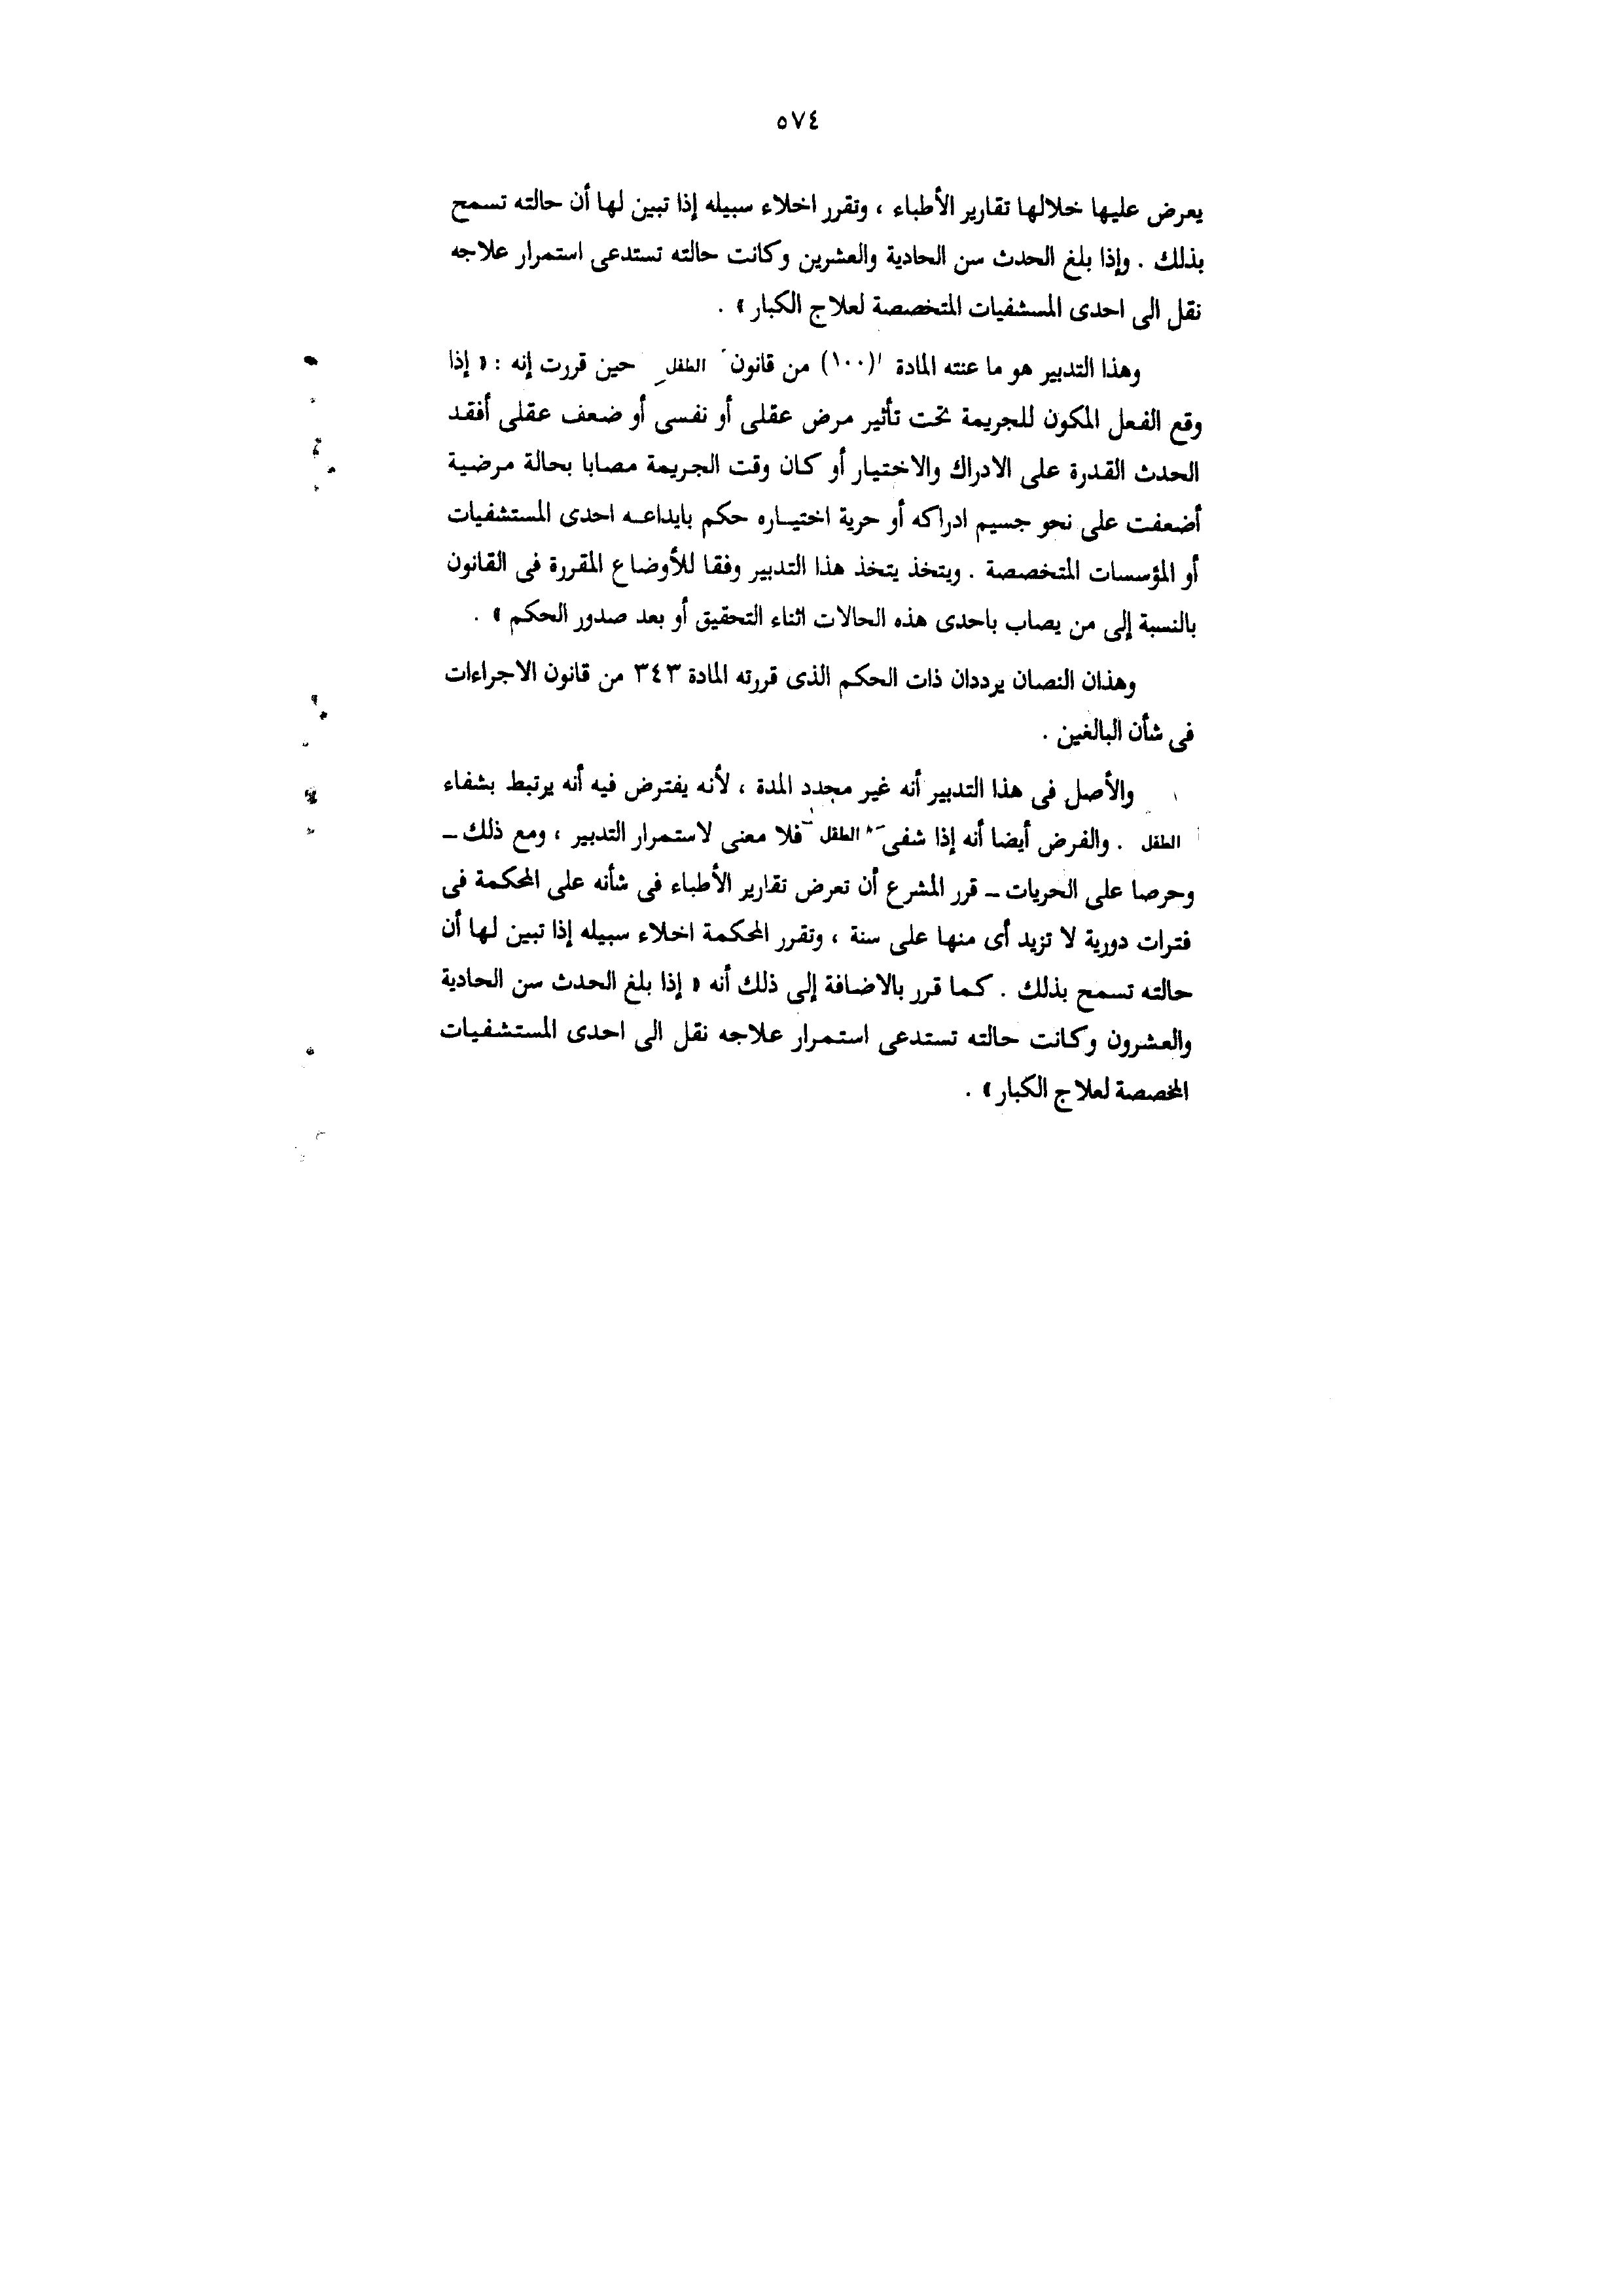 ٥٧٤
يعرض عليها خلالها تقارير الأطباء ، وتقرر اخلاء سبيله إذا تبين لها أن حالته تسمح
بذلك . وإذا بلغ الحدث سن الحادية والعشرين وكانت حالته تستدعى استمرار علاجه
نقل الى احدى المسشفيات المتخصصة لعلاج الكبار » .
وهذا التدبير هو ما عنته المادة (١٠٠) من قانون الطفل حين قررت إنه : « إذا
وقع الفعل المكون للجريمة تحت تأثير مرض عقلى أو نفسى أو ضعف عقلى أفقد
الحدث القدرة على الادراك والاختيار أو كان وقت الجريمة مصابا بحالة مرضية
أضعفت على نحو جسيم ادراكه أو حرية اختيـاره حكم بايداعـه احدى المستشفيات
أو المؤسسات المتخصصة . ويتخذ يتخذ هذا التدبير وفقا للأوضاع المقررة فى القانون
بالنسبة إلى من يصاب باحدى هذه الحالات اثناء التحقيق أو بعد صدور الحكم » .
وهذان النصان يرددان ذات الحكم الذى قررته المادة ٣٤٣ من قانون الاجراءات
فى شأن البالغين .
والأصل فى هذا التدبير أنه غير محدد المدة ، لأنه يفترض فيه أنه يرتبط بشفاء
الطفل . والفرض أيضا أنه إذا شفى الطفل فلا معنى لاستمرار التدبير ، ومع ذلك ــ
وحرصا على الحريات ــ قرر المشرع أن تعرض تقارير الأطباء فى شأنه على المحكمة فى
فترات دورية لا تزيد أى منها على سنة ، وتقرر المحكمة اخلاء سبيله إذا تبين لها أن
حالته تسمح بذلك . كما قرر بالاضافة إلى ذلك أنه « إذا بلغ الحدث سن الحادية
والعشرون وكانت حالته تستدعى استمرار علاجه نقل الى احدى المستشفيات
المخصصة لعلاج الكبار » .